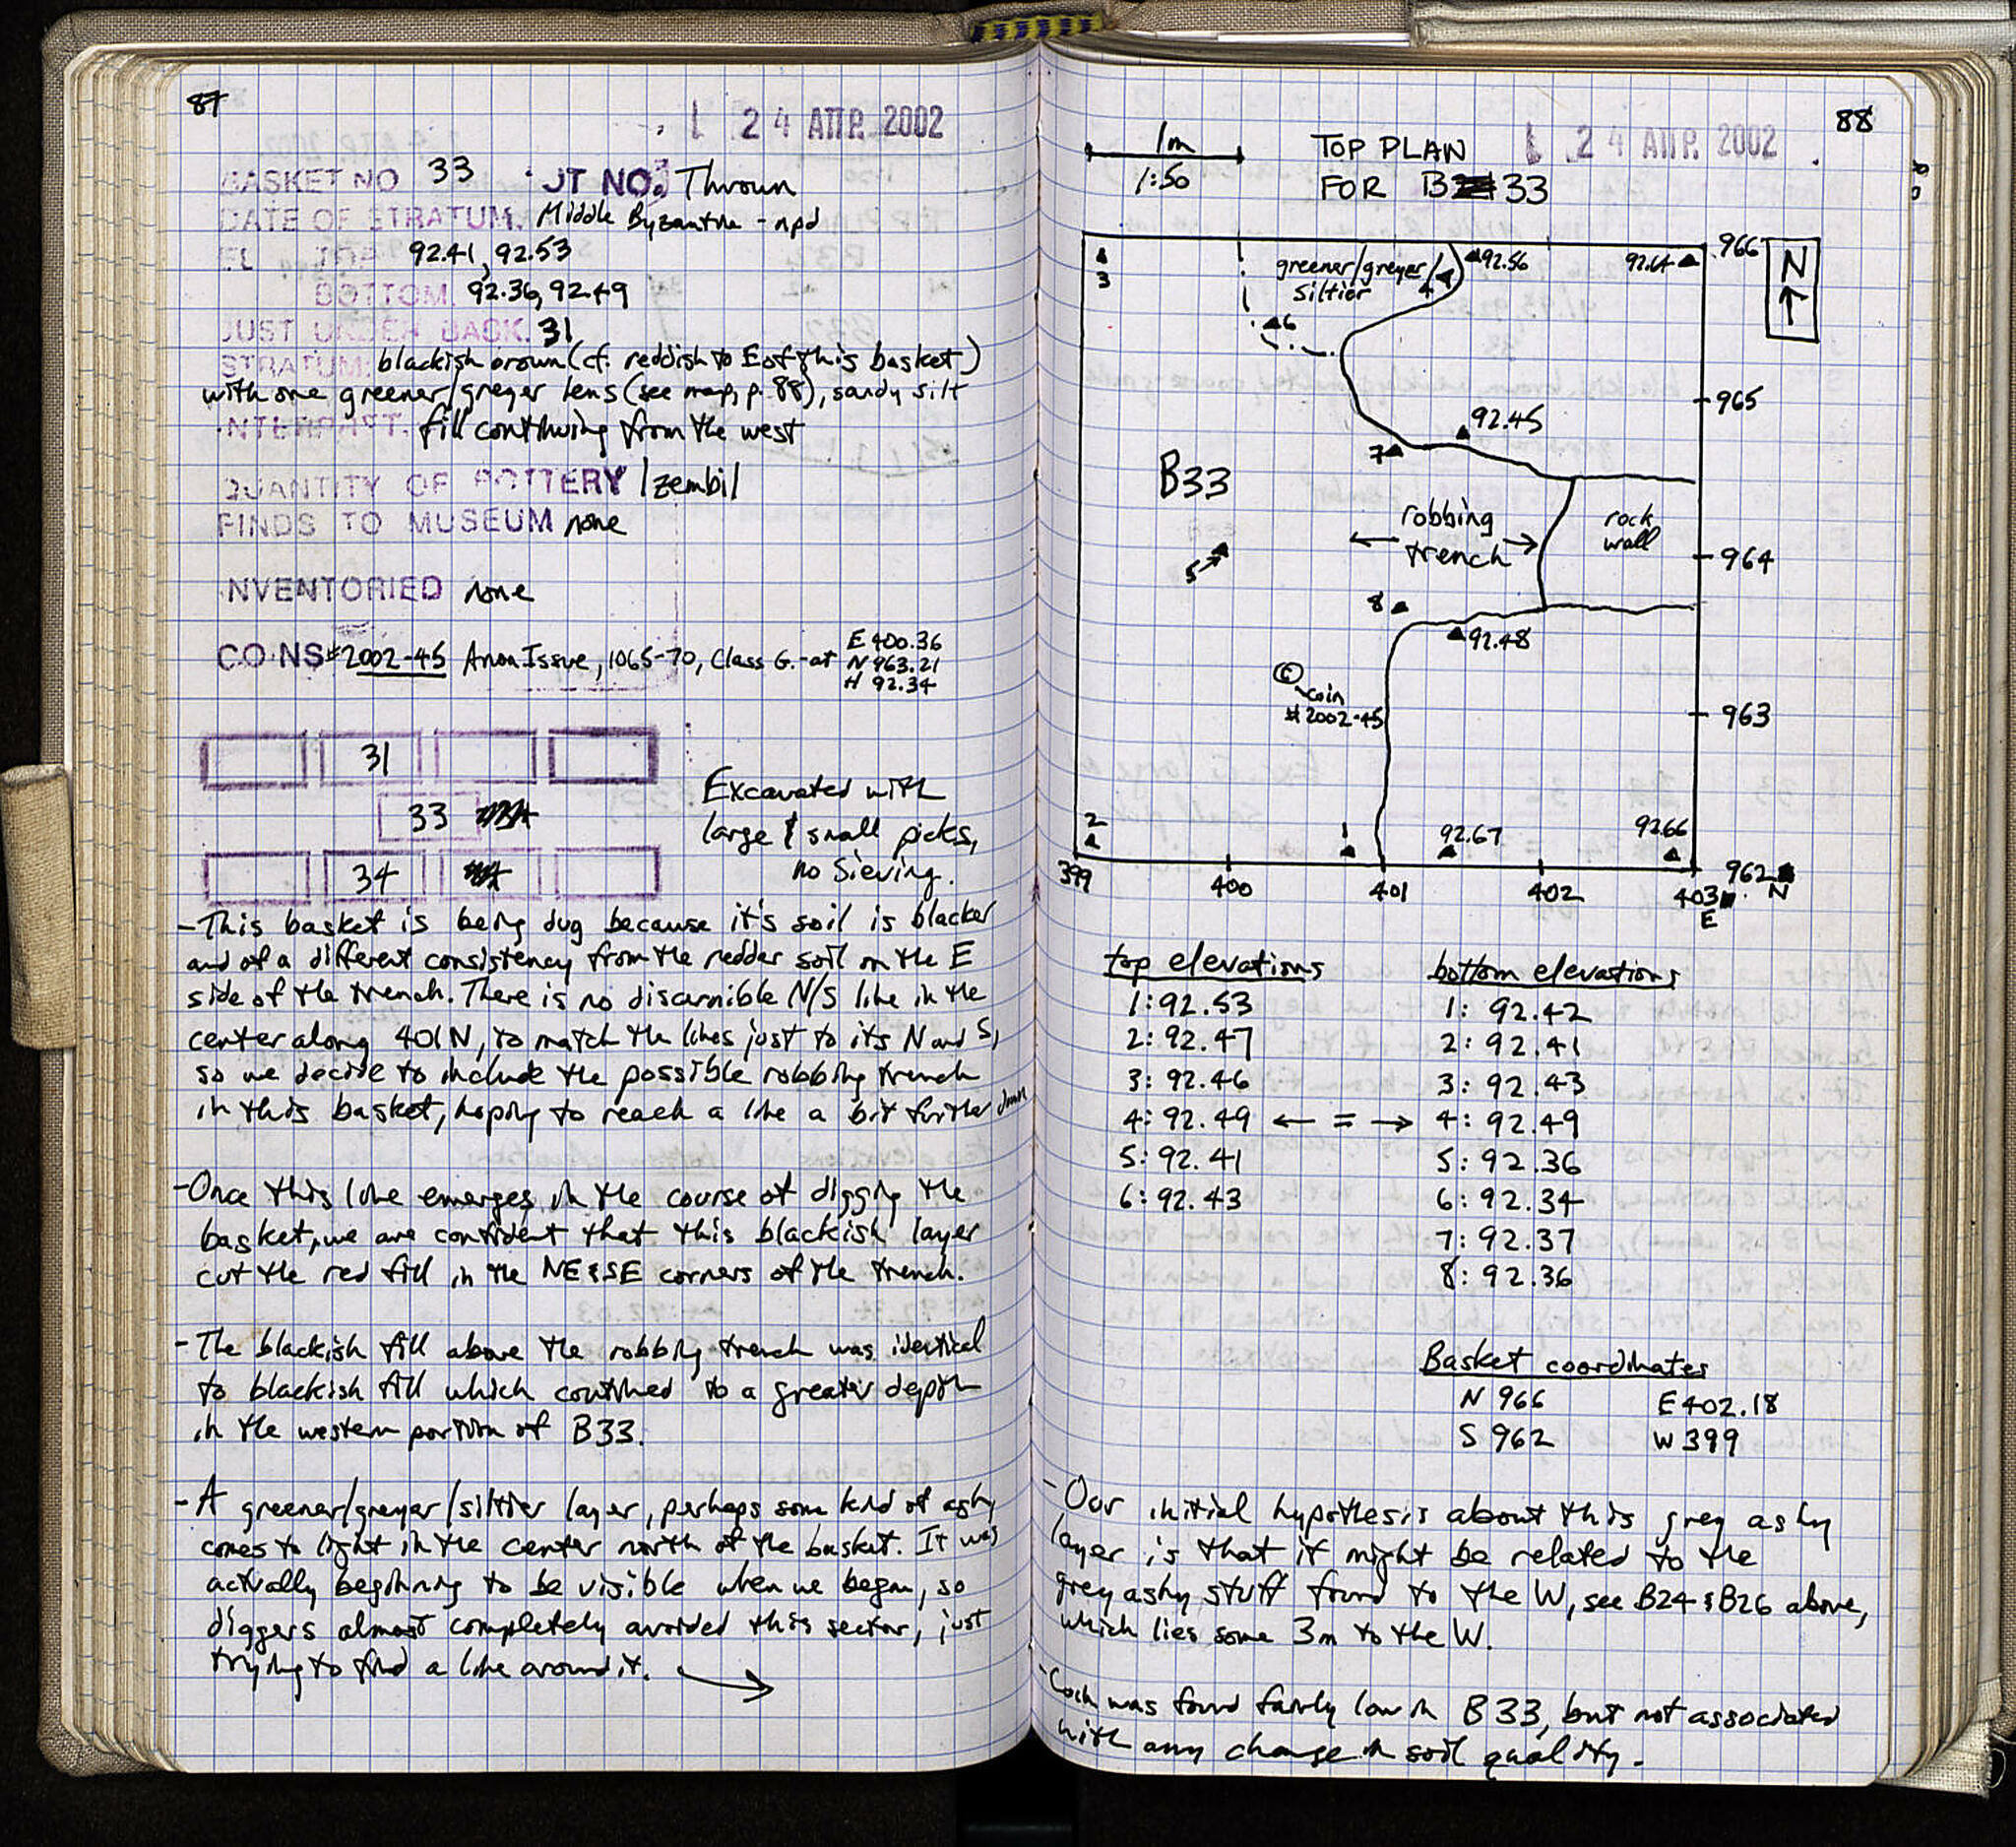 87
24 ΑΠΡ. 2002
BASKET NO 33 LOT NO. Thrown
DATE OF STRATUM. Middle Byzantine - npd
EL TOP 92.41, 92.53
BOTTOM. 92.36, 92.49
JUST UNDER BASK. 31
STRATUM: blackish brown (cf. reddish to E of this basket)
with one greener/greyer lens (see map, p. 88), sandy silt
INTERPRET. fill continuing from the west
QUANTITY OF POTTERY 1 zembil
FINDS TO MUSEUM none
INVENTORIED none
COINS #2002-45 Anon Issue, 1065-70, Class G. - at E 400.36
N 963.21
H 92.34
31
33
34
Excavated with
large & small picks,
no sieving.
- This basket is being dug because it's soil is blacker
and of a different consistency from the redder soil on the E
side of the trench. There is no discernible N/S line in the
center along 401 N, to match the lines just to its N and S,
so we decide to include the possible robbing trench
in this basket, hoping to reach a line a bit further down
- Once this line emerges in the course of digging the
basket, we are confident that this blackish layer
cut the red fill in the NE & SE corners of the trench.
- The blackish fill above the robbing trench was identical
to blackish fill which continued to a greater depth
in the western portion of B33.
- A greener/greyer/siltier layer, perhaps some kind of ash,
comes to light in the center north of the basket. It was
actually beginning to be visible when we began, so
diggers almost completely avoided this sector, just
trying to find a line around it. →
88
24 ΑΠΡ. 2002
1m
1:50
TOP PLAN
FOR B 33
966
N
3
greener/greyer/
siltier
4
92.56
92.64
6
965
92.45
7
B33
robbing
trench
rock
wall
964
5
8
92.48
©
coin
#2002-45
963
2
1
92.67
92.66
399
400
401
402
403
E
962
N
top elevations
1: 92.53
2: 92.47
3: 92.46
4: 92.49 ← = →
5: 92.41
6: 92.43
bottom elevations
1: 92.42
2: 92.41
3: 92.43
4: 92.49
5: 92.36
6: 92.34
7: 92.37
8: 92.36
Basket coordinates
N 966 E 402.18
S 962 W 399
- Our initial hypothesis about this grey ashy
layer is that it might be related to the
grey ashy stuff found to the W, see B24 & B26 above,
which lies some 3m to the W.
- Coin was found fairly low in B33, but not associated
with any change in soil quality.